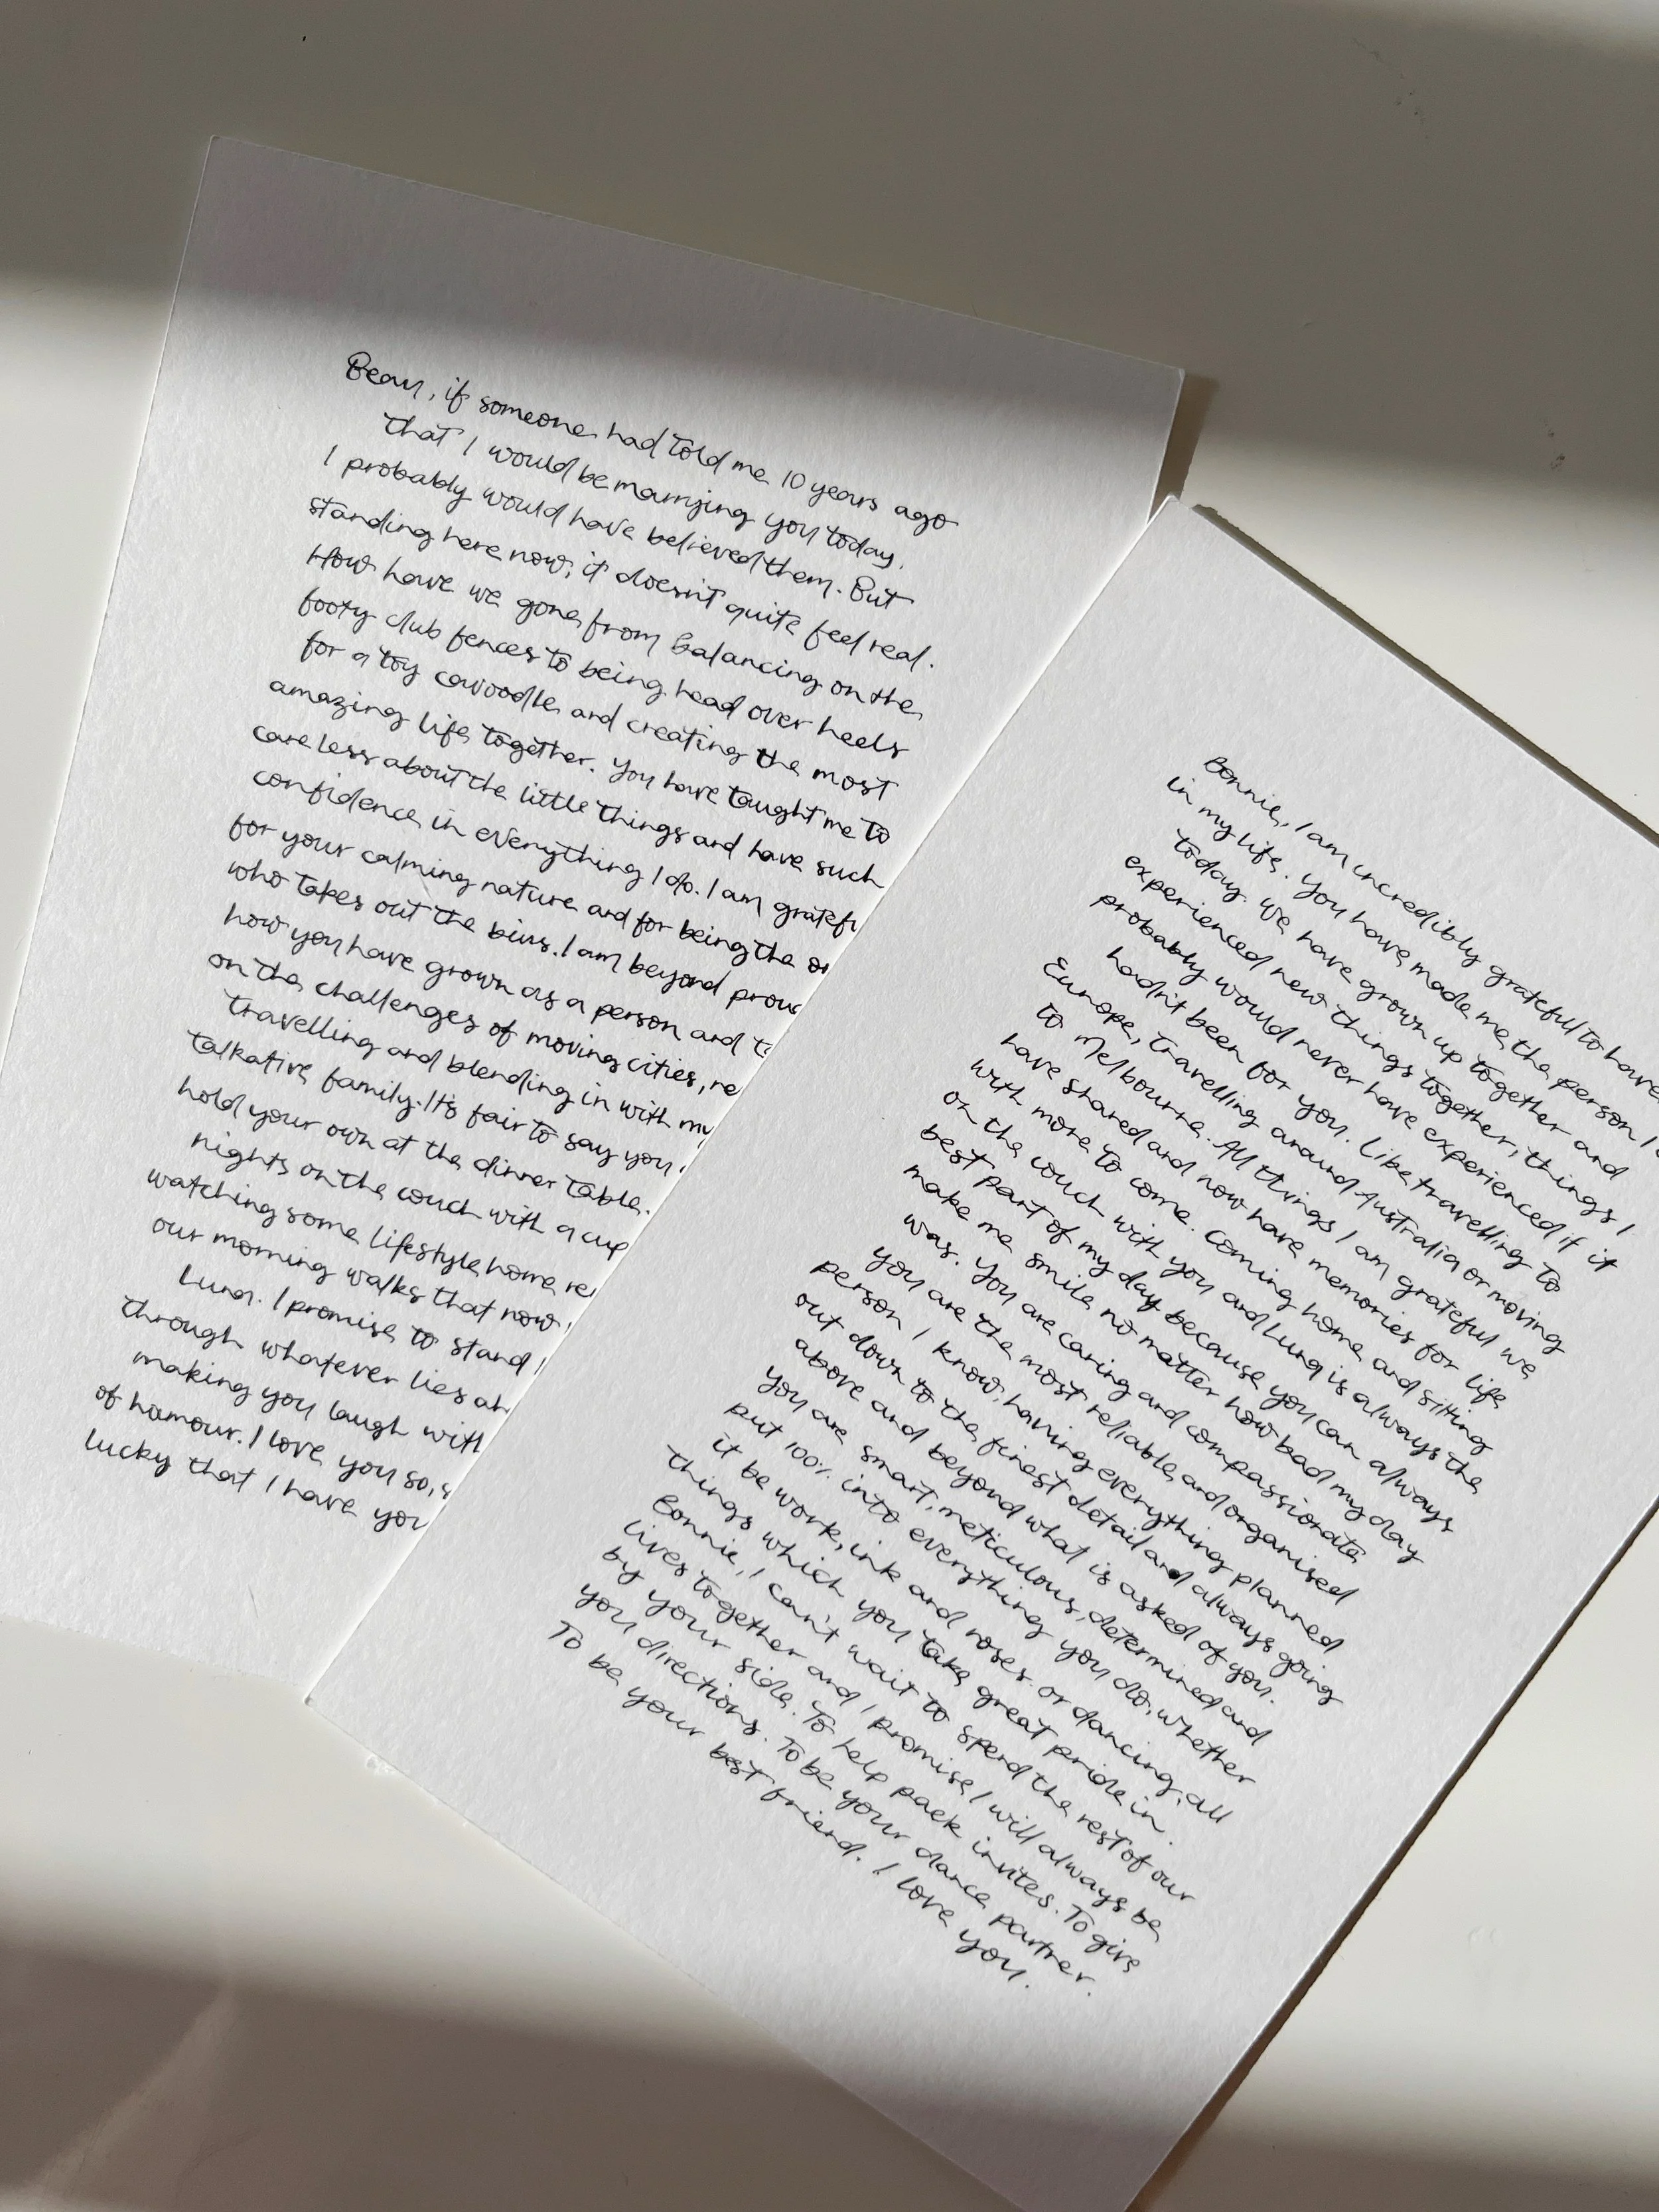 Beau, if someone had told me 10 years ago
that I would be marrying you today,
I probably would have believed them. But
standing here now, it doesn't quite feel real.
How have we gone from balancing on the
footy club fences to being head over heels
for a toy cavoodle and creating the most
amazing life together. You have taught me to
care less about the little things and have such
confidence in everything I do. I am gratefu
for your calming nature and for being the on
who takes out the bins. I am beyond prou
how you have grown as a person and ta
on the challenges of moving cities, re
travelling and blending in with my
talkative family. It's fair to say you
hold your own at the dinner table.
nights on the couch with a cup
watching some lifestyle home re
our morning walks that now
Luna. I promise to stand
through whatever lies ah
making you laugh with
of humour. I love you so, s
lucky that I have you
Bonnie, I am incredibly grateful to have
in my life. You have made me the person I
today. We have grown up together and
experienced new things together, things I
probably would never have experienced if it
hadn't been for you. Like travelling to
Europe, travelling around Australia or moving
to Melbourne. All things I am grateful we
have shared and now have memories for life
with more to come. Coming home and sitting
on the couch with you and Luna is always the
best part of my day because you can always
make me smile no matter how bad my day
was. You are caring and compassionate
you are the most reliable and organised
person I know, having everything planned
out down to the finest detail and always going
above and beyond what is asked of you.
You are smart, meticulous, determined and
put 100% into everything you do, whether
it be work, ink and roses or dancing, all
things which you take great pride in.
Bonnie, I can't wait to spend the rest of our
lives together and I promise I will always be
by your side. To help pack invites. To give
you directions. To be your dance partner.
To be your best friend. I love you.